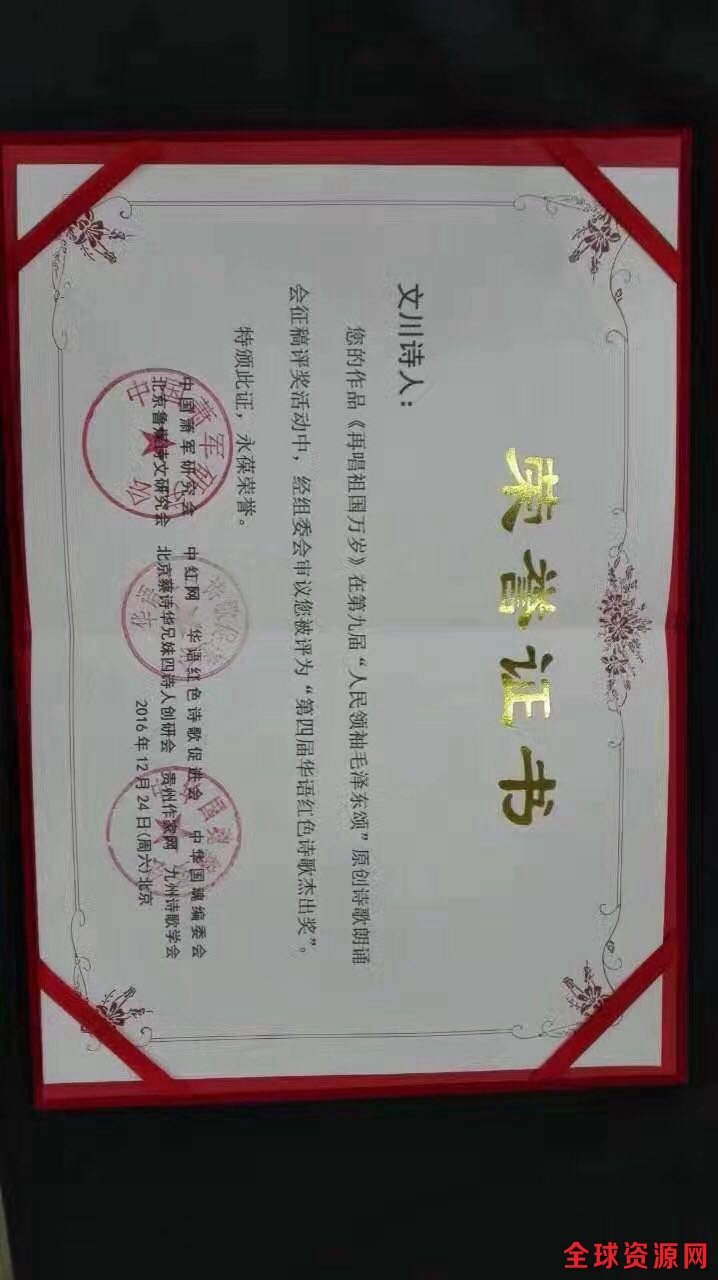 荣誉证书
文川诗人：
您的作品《再唱祖国万岁》在第九届“人民领袖毛泽东颂”原创诗歌朗诵
会征稿评奖活动中，经组委会审议您被评为“第四届华语红色诗歌杰出奖”。
特颁此证，永葆荣誉。
中国萧军研究会 中红网 华语红色诗歌促进会 中华国魂编委会
北京鲁煤诗文研究会 北京蔡诗华兄妹四诗人创研会 贵州作家网 九州诗歌学会
2016年12月24日(周六)北京
全球资源网